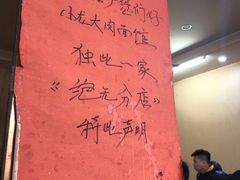 们好
小龙大肉面馆
独此一家
“绝无分店”
特此声明